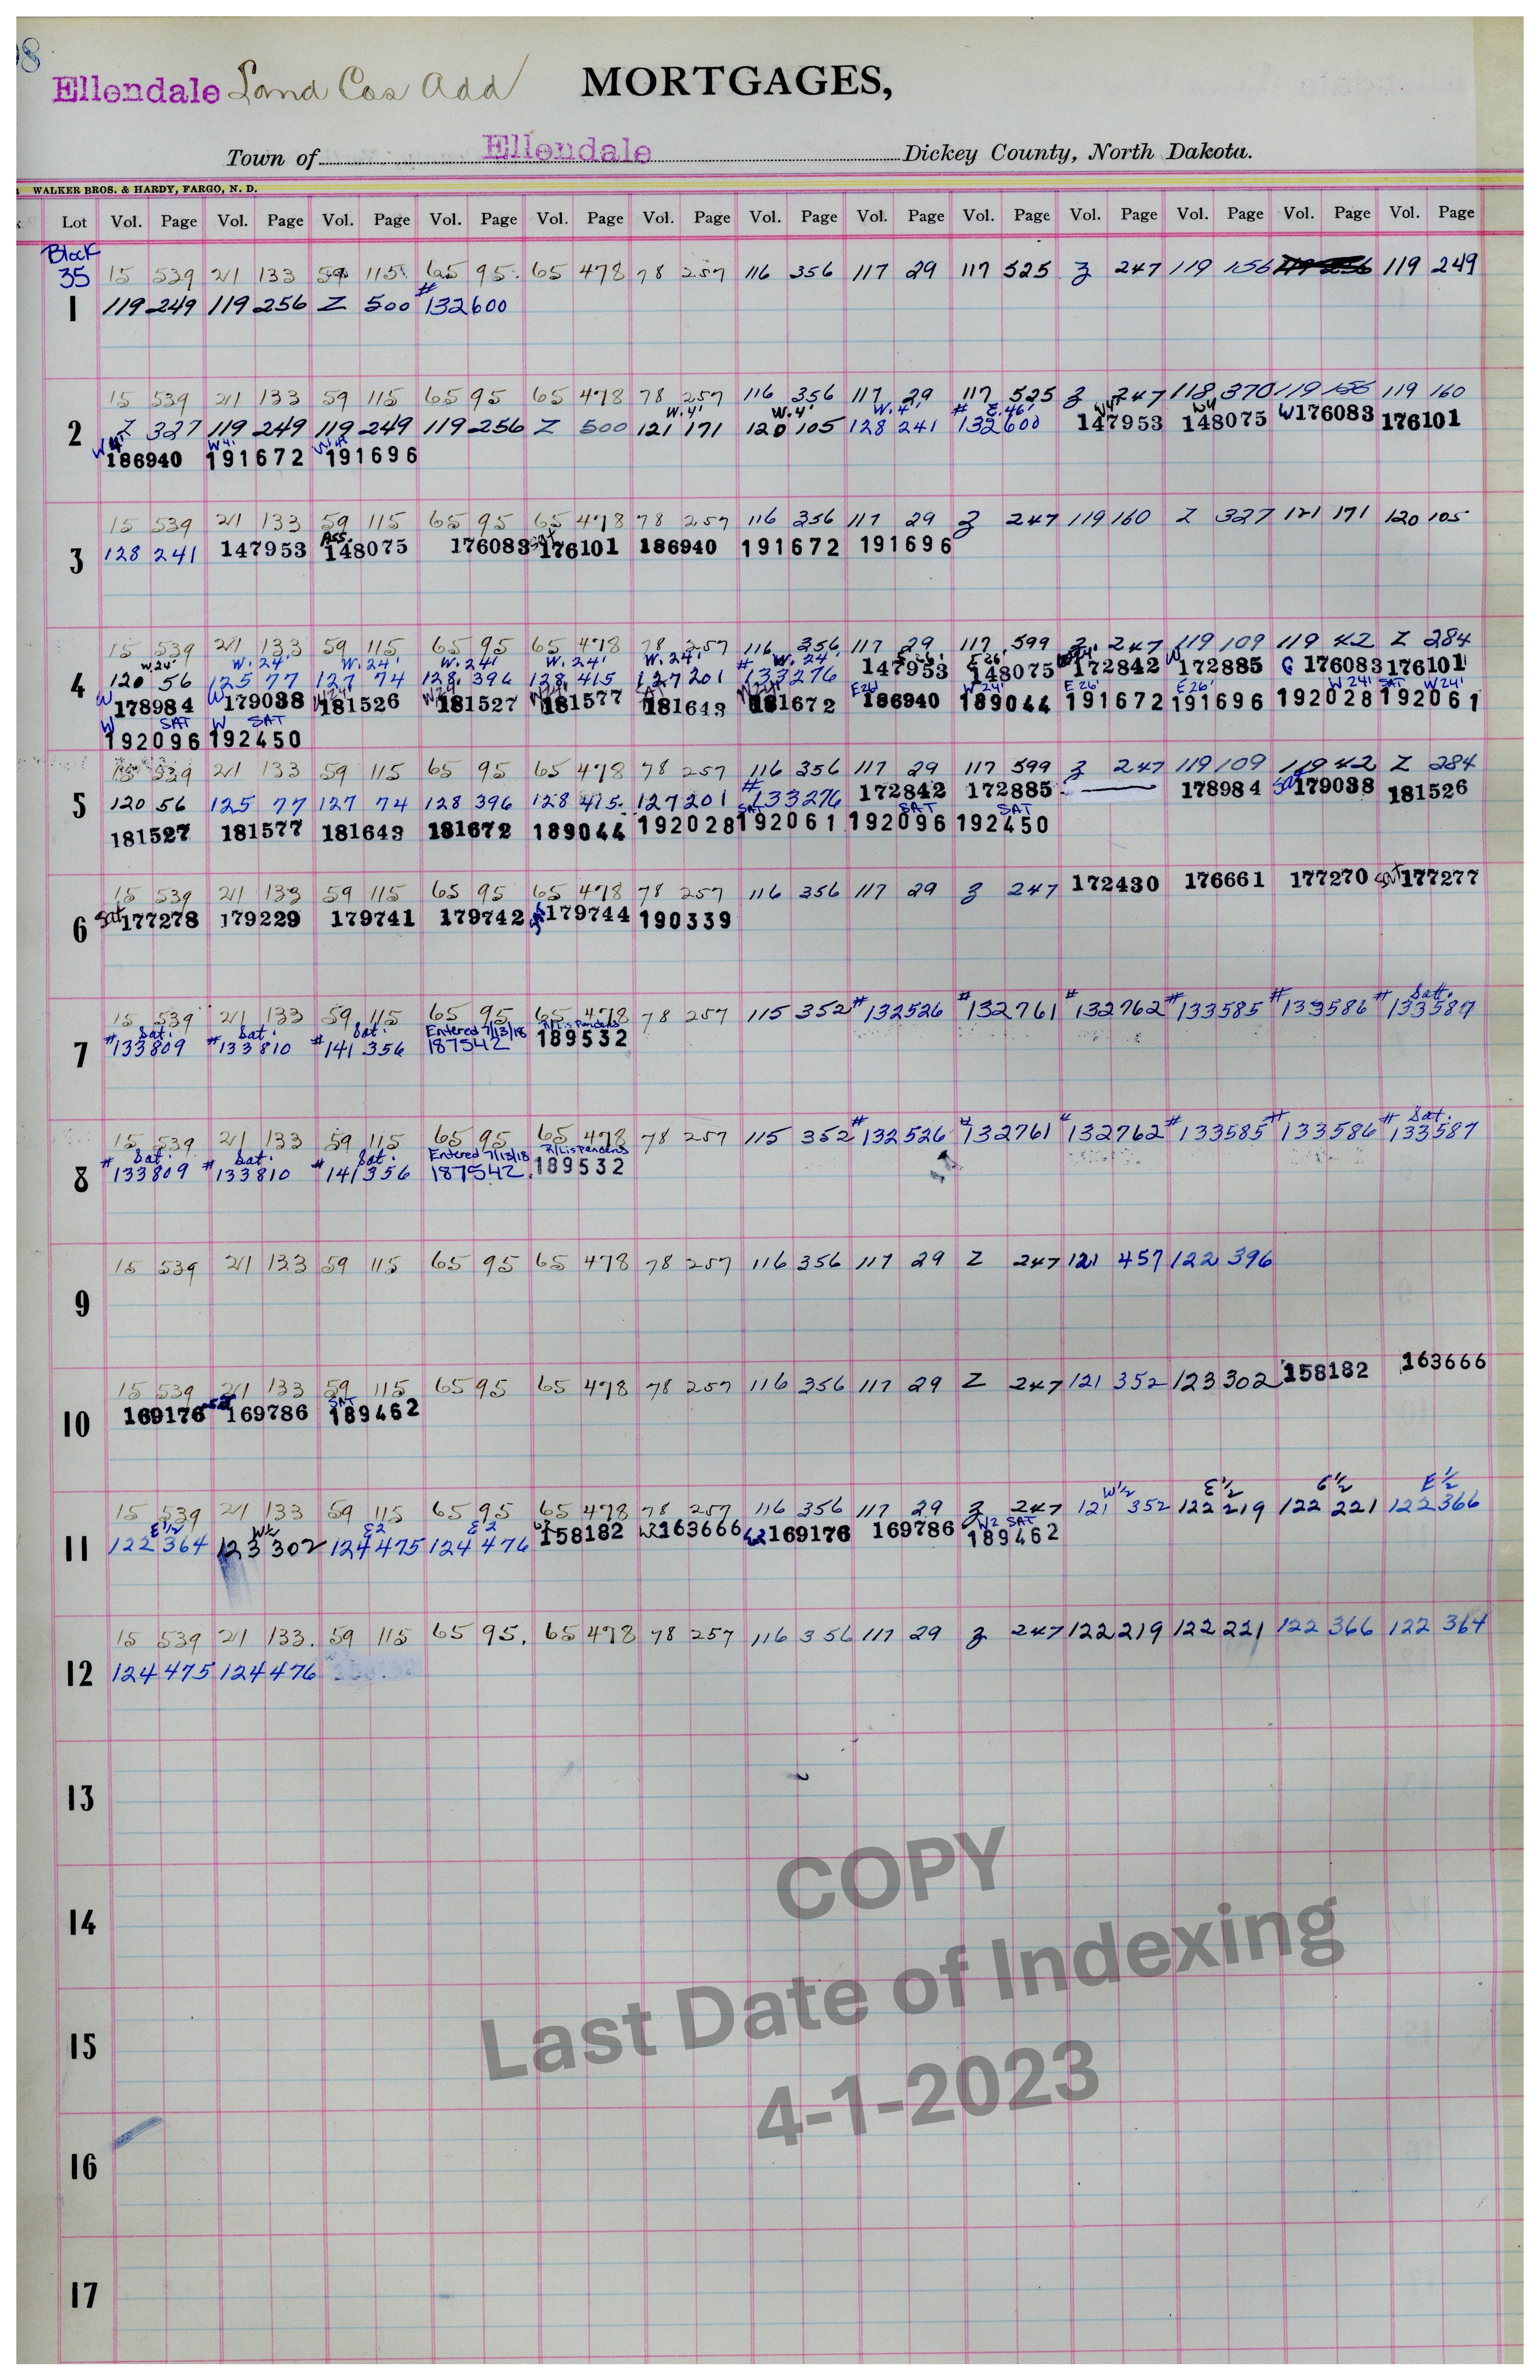 Ellendale Land Cos Add MORTGAGES,
Town of Ellendale Dickey County, North Dakota.
WALKER BROS. & HARDY, FARGO, N. D.
Lot Vol. Page Vol. Page Vol. Page Vol. Page Vol. Page Vol. Page Vol. Page Vol. Page Vol. Page Vol. Page Vol. Page Vol. Page Vol. Page
Block
35 15 539 21 133 59 115 65 95 65 478 78 257 116 356 117 29 117 525 Z 247 119 156 119 249
1 119 249 119 256 Z 500 #132600
15 539 21 133 59 115 65 95 65 478 78 257 116 356 117 29 117 525 Z 247 118 370 119 156 119 160
W.4' W.4' W.4' # E.46' W4' W4
2 Z 327 119 249 119 249 119 256 Z 500 121 171 120 105 128 241 132600 147953 148075 W176083 176101
W4' W4' W4'
186940 191672 191696
15 539 21 133 59 115 65 95 65 478 78 257 116 356 117 29 Z 247 119 160 Z 327 121 171 120 105
3 128 241 147953 Ass. 148075 176083 Sat 176101 186940 191672 191696
15 539 21 133 59 115 65 95 65 478 78 257 116 356 117 29 117 599 Z 247 119 109 119 42 Z 284
W.24' W.24' W.24' W.24' W.24' W.24' # W.24' E.26' E26'
4 120 56 125 77 127 74 128 396 128 415 127 201 133276 147953 148075 172842 W172885 176083 176101
W178984 W179038 W24' 181526 W24' 181527 W24' 181577 181643 W24' 181672 E26' 186940 W24' 189044 E26' 191672 E26' 191696 W24' 192028 SAT W24' 192061
W SAT W SAT
192096 192450
15 539 21 133 59 115 65 95 65 478 78 257 116 356 117 29 117 599 Z 247 119 109 119 42 Z 284
5 120 56 125 77 127 74 128 396 128 415 127 201 #133276 172842 172885 178984 Sat 179038 181526
181527 181577 181643 181672 189044 192028 SAT 192061 SAT 192096 SAT 192450
15 539 21 133 59 115 65 95 65 478 78 257 116 356 117 29 Z 247 172430 176661 177270 Sat 177277
6 Sat 177278 179229 179741 179742 179744 190339
15 539 21 133 59 115 65 95 65 478 78 257 115 352 #132526 #132761 #132762 #133585 #133586 # Sat. 133587
Sat. Sat. Sat. Entered 7/13/18 R/Lis Pendens
7 #133809 #133810 #141356 187542 189532
15 539 21 133 59 115 65 95 65 478 78 257 115 352 #132526 #132761 #132762 #133585 #133586 # Sat. 133587
Sat. Sat. Sat. Entered 7/13/18 R/Lis Pendens
8 #133809 #133810 #141356 187542 189532
9 15 539 21 133 59 115 65 95 65 478 78 257 116 356 117 29 Z 247 121 457 122 396
15 539 21 133 59 115 65 95 65 478 78 257 116 356 117 29 Z 247 121 352 123 302 158182 163666
10 169176 169786 SAT 189462
W½ E½ E½ E½
15 539 21 133 59 115 65 95 65 478 78 257 116 356 117 29 Z 247 121 352 122 219 122 221 122 366
E½ W½ E2 E2 W2 SAT
11 122 364 123 302 124 475 124 476 158182 W2 163666 169176 169786 189462
15 539 21 133. 59 115 65 95. 65 478 78 257 116 356 117 29 Z 247 122 219 122 221 122 366 122 364
12 124 475 124 476
13
14
15
16
17
COPY
Last Date of Indexing
4-1-2023